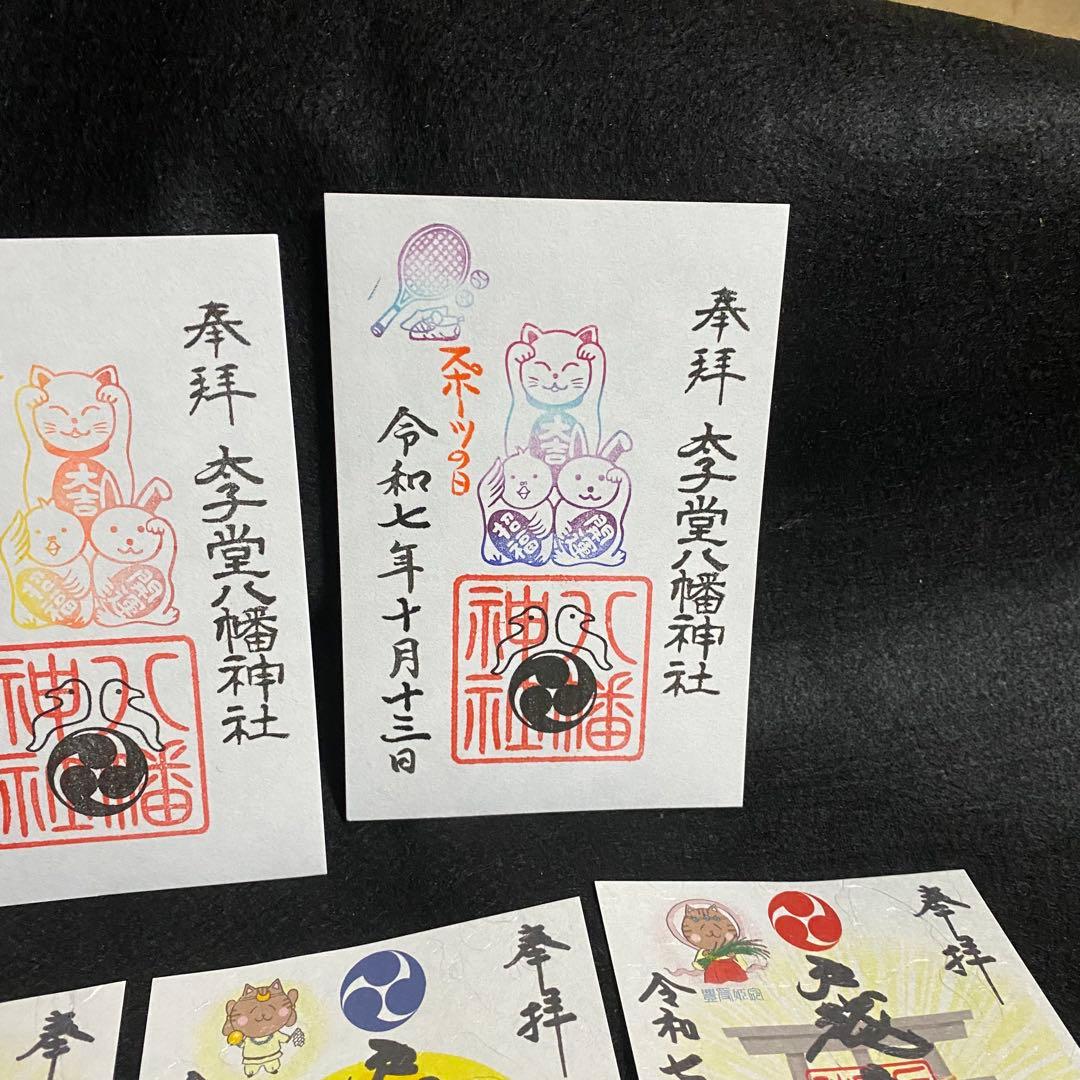 奉拝 太子堂八幡神社
大吉
招福
八幡神社
奉拝 太子堂八幡神社
大吉
招福
開運
八幡神社
スポーツの日
令和七年十月十三日
奉拝
奉拝
奉拝
豊受姫命
令和七